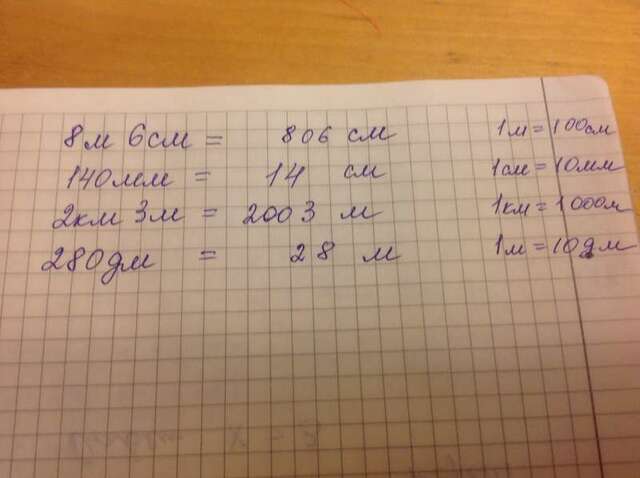 8м 6см = 806 см 1м = 100см
140мм = 14 см 1см = 10мм
2км 3м = 2003 м 1км = 1000м
280дм = 28 м 1м = 10дм